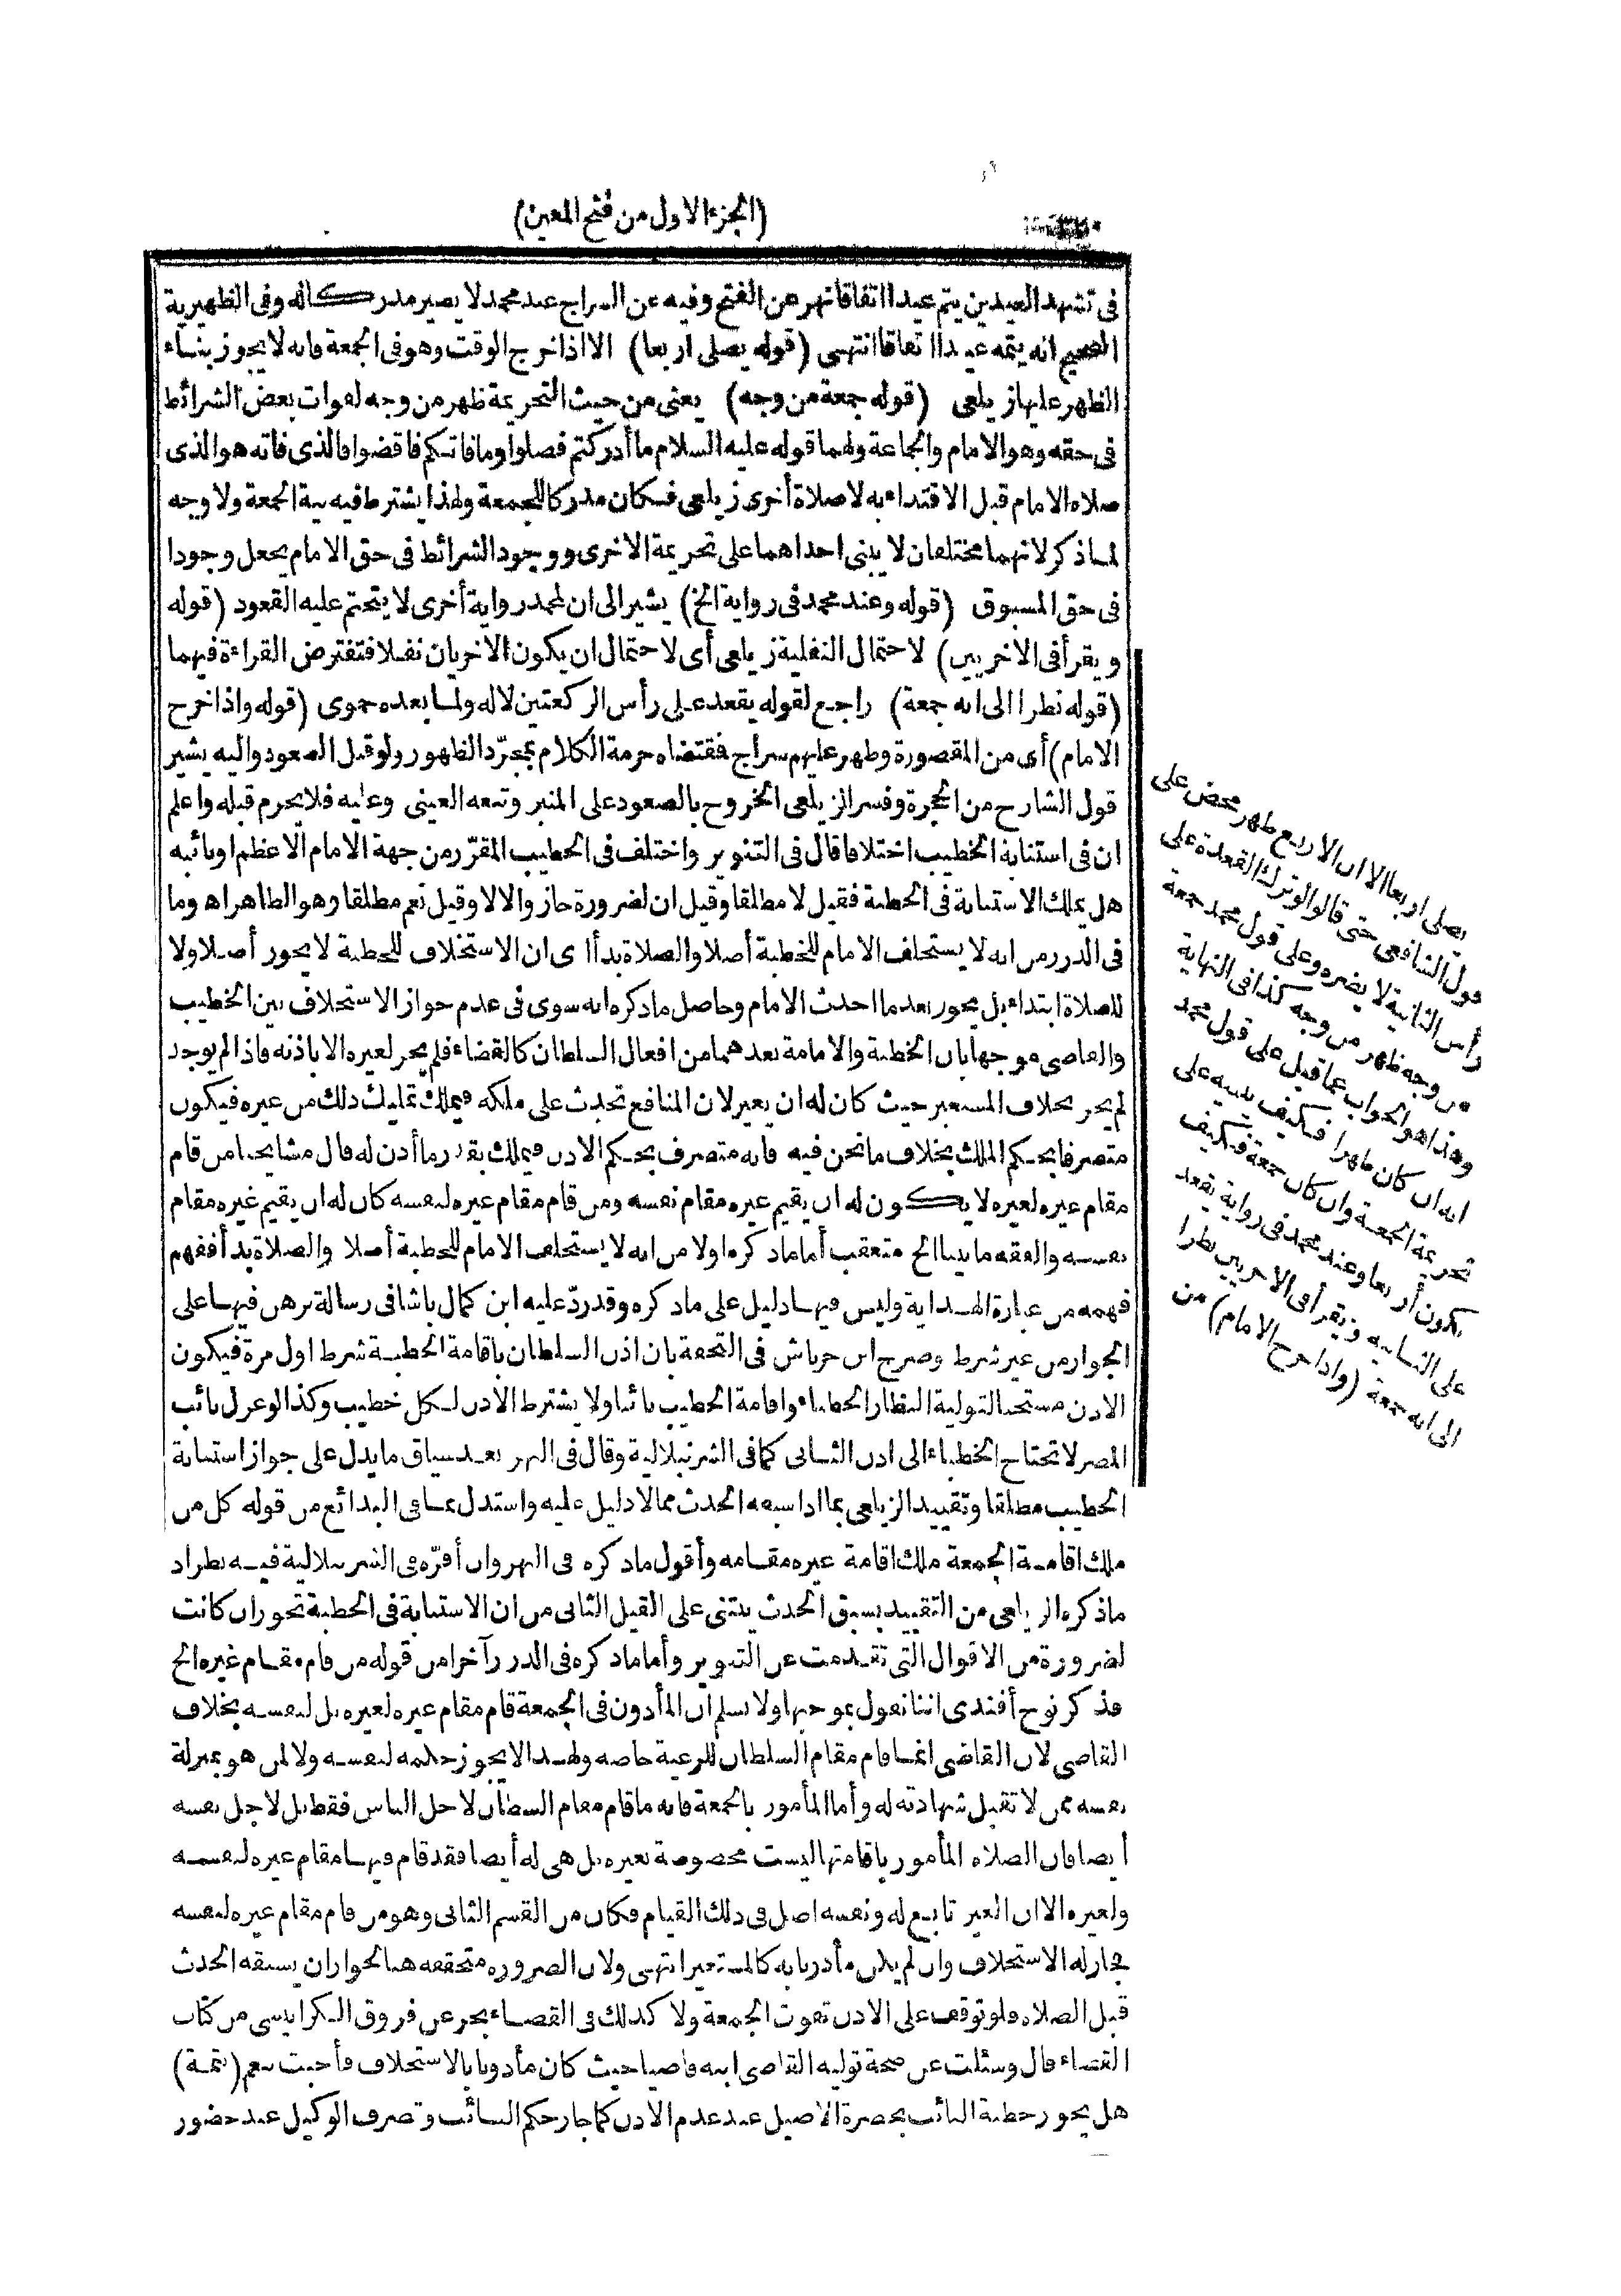 (الجزء الاول من فتح المعين)
فى تشهد العيدين يتم عيدا اتفاقا نهر عن الفتح وفيه عن السراج عند محمد لا يصير مدركا له وفى الظهيرية
الصحيح انه يتمه عيدا اتفاقا انتهى (قوله يصلى اربعا) الا اذا خرج الوقت وهو فى الجمعة فانه لا يجوز بناء
الظهر عليها زيلعى (قوله جمعة من وجه) يعنى من حيث التحريمة ظهر من وجه لفوات بعض الشرائط
فى حقه وهو الامام والجماعة ولهما قوله عليه السلام ما أدركتم فصلوا وما فاتكم فاقضوا فالذى فاته هو الذى
صلاه الامام قبل الاقتداء به لا صلاة أخرى زيلعى فكان مدركا للجمعة ولهذا يشترط فيه نية الجمعة ولا وجه
لما ذكر لانهما مختلفان لا يبنى احداهما على تحريمة الاخرى ووجود الشرائط فى حق الامام يجعل وجودا
فى حق المسبوق (قوله وعند محمد فى رواية الخ) يشير الى ان لمحمد رواية أخرى لا يتحتم عليه القعود (قوله
ويقرأ فى الاخريين) لاحتمال النفلية زيلعى أى لاحتمال ان يكون الاخريان نفلا فتفترض القراءة فيهما
(قوله نظرا الى انه جمعة) راجع لقوله يقعد على رأس الركعتين لا له ولما بعده حموى (قوله واذا خرج
الامام) أى من المقصورة وظهر عليهم سراج فقتضاه حرمة الكلام بمجرّد الظهور ولو قبل الصعود واليه يشير
قول الشارح من الحجرة وفسر الزيلعى الخروج بالصعود على المنبر وتبعه العينى وعليه فلا يحرم قبله واعلم
ان فى استنابة الخطيب اختلافا قال فى التنوير واختلف فى الخطيب المقرّر من جهة الامام الاعظم او نائبه
هل يملك الاستنابة فى الخطبة فقيل لا مطلقا وقيل ان لضرورة جاز والا لا وقيل نعم مطلقا وهو الظاهر اه وما
فى الدرر من انه لا يستخلف الامام للخطبة أصلا والصلاة بدأ اى ان الاستخلاف للخطبة لا يجوز أصلا ولا
للصلاة ابتداء بل يجوز بعد ما احدث الامام وحاصل ما ذكره انه سوى فى عدم جواز الاستخلاف بين الخطيب
والقاضى موجها بان الخطبة والامامة بعدهما من افعال السلطان كالقضاء فلم يجز لغيره الا باذنه فاذا لم يوجد
لم يجز بخلاف المستعير حيث كان له ان يعير لان المنافع تحدث على ملكه فيملك تمليك ذلك من غيره فيكون
متصرفا بحكم الملك بخلاف ما نحن فيه فانه متصرف بحكم الاذن فيملك بقدر ما أذن له قال مشايخنا من قام
مقام غيره لغيره لا يكون له ان يقيم غيره مقام نفسه ومن قام مقام غيره لنفسه كان له ان يقيم غيره مقام
نفسه والفقه ما بينا الخ متعقب أما ما ذكره اولا من انه لا يستخلف الامام للخطبة أصلا والصلاة بدأ ففهم
فهمه من عبارة الهداية وليس فيها دليل على ما ذكره وقد ردّ عليه ابن كمال باشا فى رسالة برهن فيها على
الجواز من غير شرط وصرح ابن جرباش فى التحفة بان اذن السلطان باقامة الخطبة شرط اول مرة فيكون
الاذن مستحبا لتولية النظار الخطباء واقامة الخطيب نائبا ولا يشترط الاذن لكل خطيب وكذا لو عزل نائب
المصر لا تحتاج الخطباء الى اذن الثانى كما فى الشرنبلالية وقال فى النهر بعد سياق ما يدل على جواز استنابة
الخطيب مطلقا وتقييد الزيلعى بما اذا سبقه الحدث مما لا دليل عليه واستدل بما فى البدائع من قوله كل من
ملك اقامة الجمعة ملك اقامة غيره مقامه وأقول ما ذكره فى النهر وان أقرّه فى الشرنبلالية فيه نظر اذ
ما ذكره الزيلعى من التقييد بسبق الحدث يبتنى على القيل الثانى من ان الاستنابة فى الخطبة تجوز ان كانت
لضرورة من الاقوال التى تقدمت عن التنوير وأما ما ذكره فى الدرر آخرا من قوله من قام مقام غيره الخ
فذكر نوح أفندى اننا نقول بموجبها ولا نسلم ان المأذون فى الجمعة قام مقام غيره لغيره بل لنفسه بخلاف
القاضى لان القاضى انما قام مقام السلطان للرعية خاصه ولهذا لا يجوز حكمه لنفسه ولا لمن هو بمنزلة
نفسه ممن لا تقبل شهادته له وأما المأمور بالجمعة فانه ما قام مقام السلطان لاجل الناس فقط بل لاجل نفسه
أيضا فان الصلاه المأمور باقامتها ليست مخصوصة بغيره بل هى له أيضا فقد قام فيها مقام غيره لنفسه
ولغيره الا ان الغير تابع له ونفسه اصل فى ذلك القيام فكان من القسم الثانى وهو من قام مقام غيره لنفسه
فجاز له الاستخلاف وان لم يكن مأذونا به كالمستعير انتهى ولان الضروره متحققه هنا لجواز ان يسبقه الحدث
قبل الصلاه فلو توقف على الاذن تفوت الجمعة ولا كذلك فى القضاء بحر عن فروق الكرابيسى من كتاب
القضاء قال وسئلت عن صحة توليه القاضى ابنه قاضيا حيث كان مأذونا بالاستخلاف فأجبت بنعم (تتمة)
هل يجوز خطبة النائب بحضرة الاصيل عند عدم الاذن كما جاز حكم النائب وتصرف الوكيل عند حضور
يصلى اربعا الا ان الاربع ظهر محض على
قول الشافعى حتى قالوا لو ترك القعدة على
رأس الثانية لا يضره وعلى قول محمد جمعة
من وجه ظهر من وجه كذا فى النهاية
وهذا هو الجواب عما قيل على قول محمد
انه ان كان ظهرا فكيف يبنيه على
تحريمة الجمعة وان كان جمعة فكيف
يكون أربعا وعند محمد فى رواية يقعد
على الثانيه ويقرأ فى الاخريين نظرا
الى انه جمعة (واذا خرج الامام) من